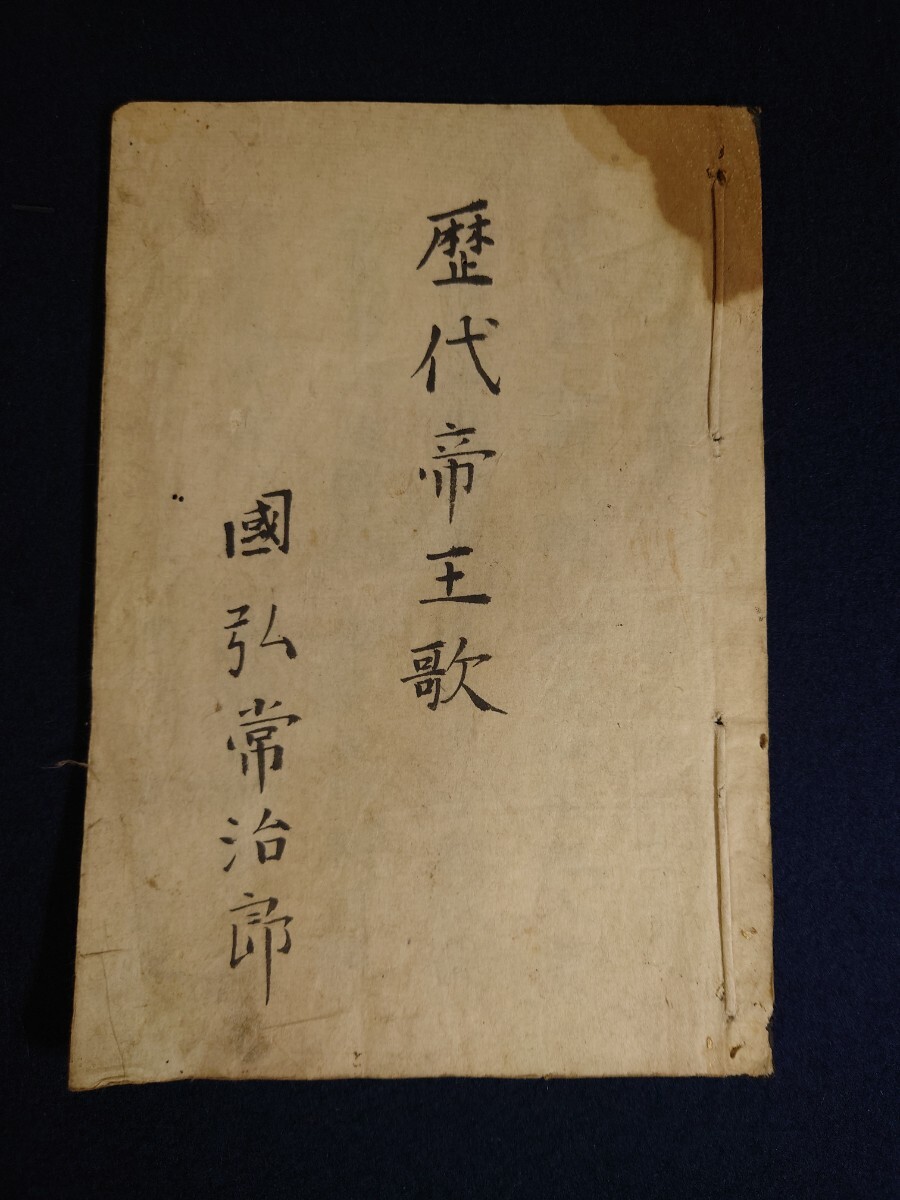 歴代帝王歌
國弘常治郎